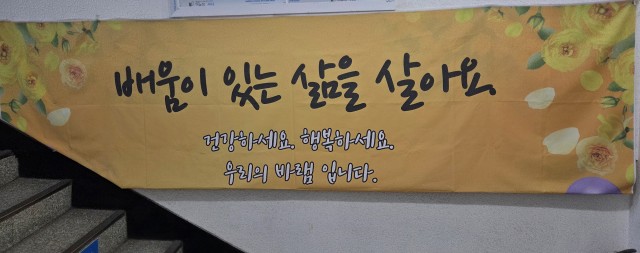 배움이 있는 삶을 살아요.
건강하세요. 행복하세요.
우리의 바램 입니다.